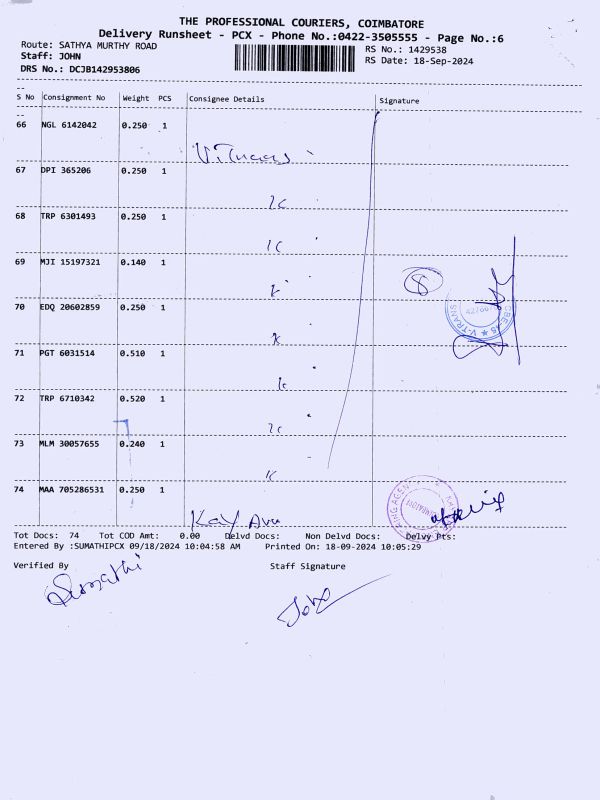 THE PROFESSIONAL COURIERS, COIMBATORE
Delivery Runsheet - PCX - Phone No.:0422-3505555 - Page No.:6
Route: SATHYA MURTHY ROAD
RS No.: 1429538
Staff: JOHN
RS Date: 18-Sep-2024
DRS No.: DCJB142953806
S No Consignment No Weight PCS Consignee Details Signature
66 NGL 6142042 0.250 1
67 DPI 365206 0.250 1
68 TRP 6301493 0.250 1
69 MJI 15197321 0.140 1
8
70 EDQ 20602859 0.250 1
V-TRANS
71 PGT 6031514 0.510 1
72 TRP 6710342 0.520 1
73 MLM 30057655 0.240 1
74 MAA 705286531 0.250 1
Tot Docs: 74 Tot COD Amt: 0.00 Delvd Docs: Non Delvd Docs: Delvy Pts:
Entered By :SUMATHIPCX 09/18/2024 10:04:58 AM Printed On: 18-09-2024 10:05:29
Verified By Staff Signature
Sumathi